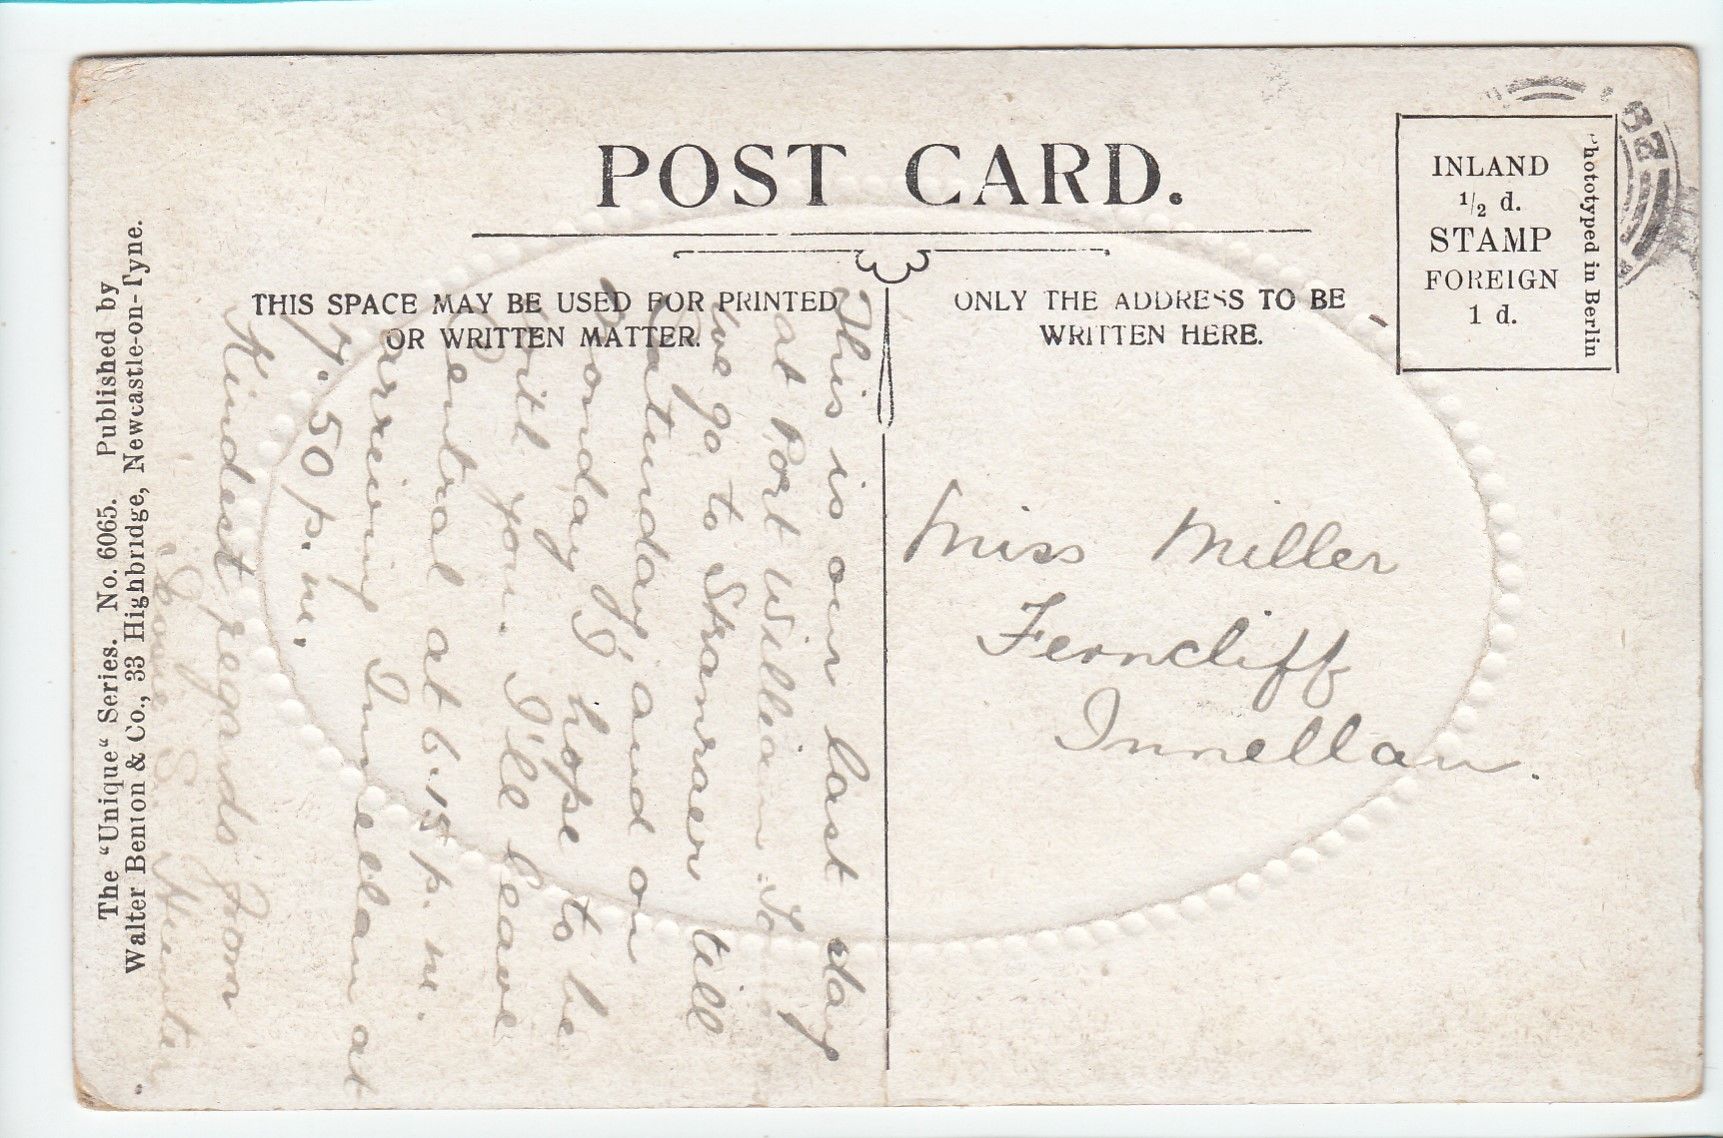 POST CARD.
THIS SPACE MAY BE USED FOR PRINTED
OR WRITTEN MATTER.
ONLY THE ADDRESS TO BE
WRITTEN HERE.
INLAND
1/2 d.
STAMP
FOREIGN
1 d.
Phototyped in Berlin
The "Unique" Series. No. 6065. Published by
Walter Benton & Co., 33 Highbridge, Newcastle-on-Tyne.
This is our last day
at Port William
We go to Stranraer till
Saturday and on
Monday I hope to be
with you. I'll leave
Central at 6.15 p.m.
arriving Innellan at
7.50 p.m.
Kindest regards from
S. Hunter
Miss Miller
Ferncliff
Innellan.